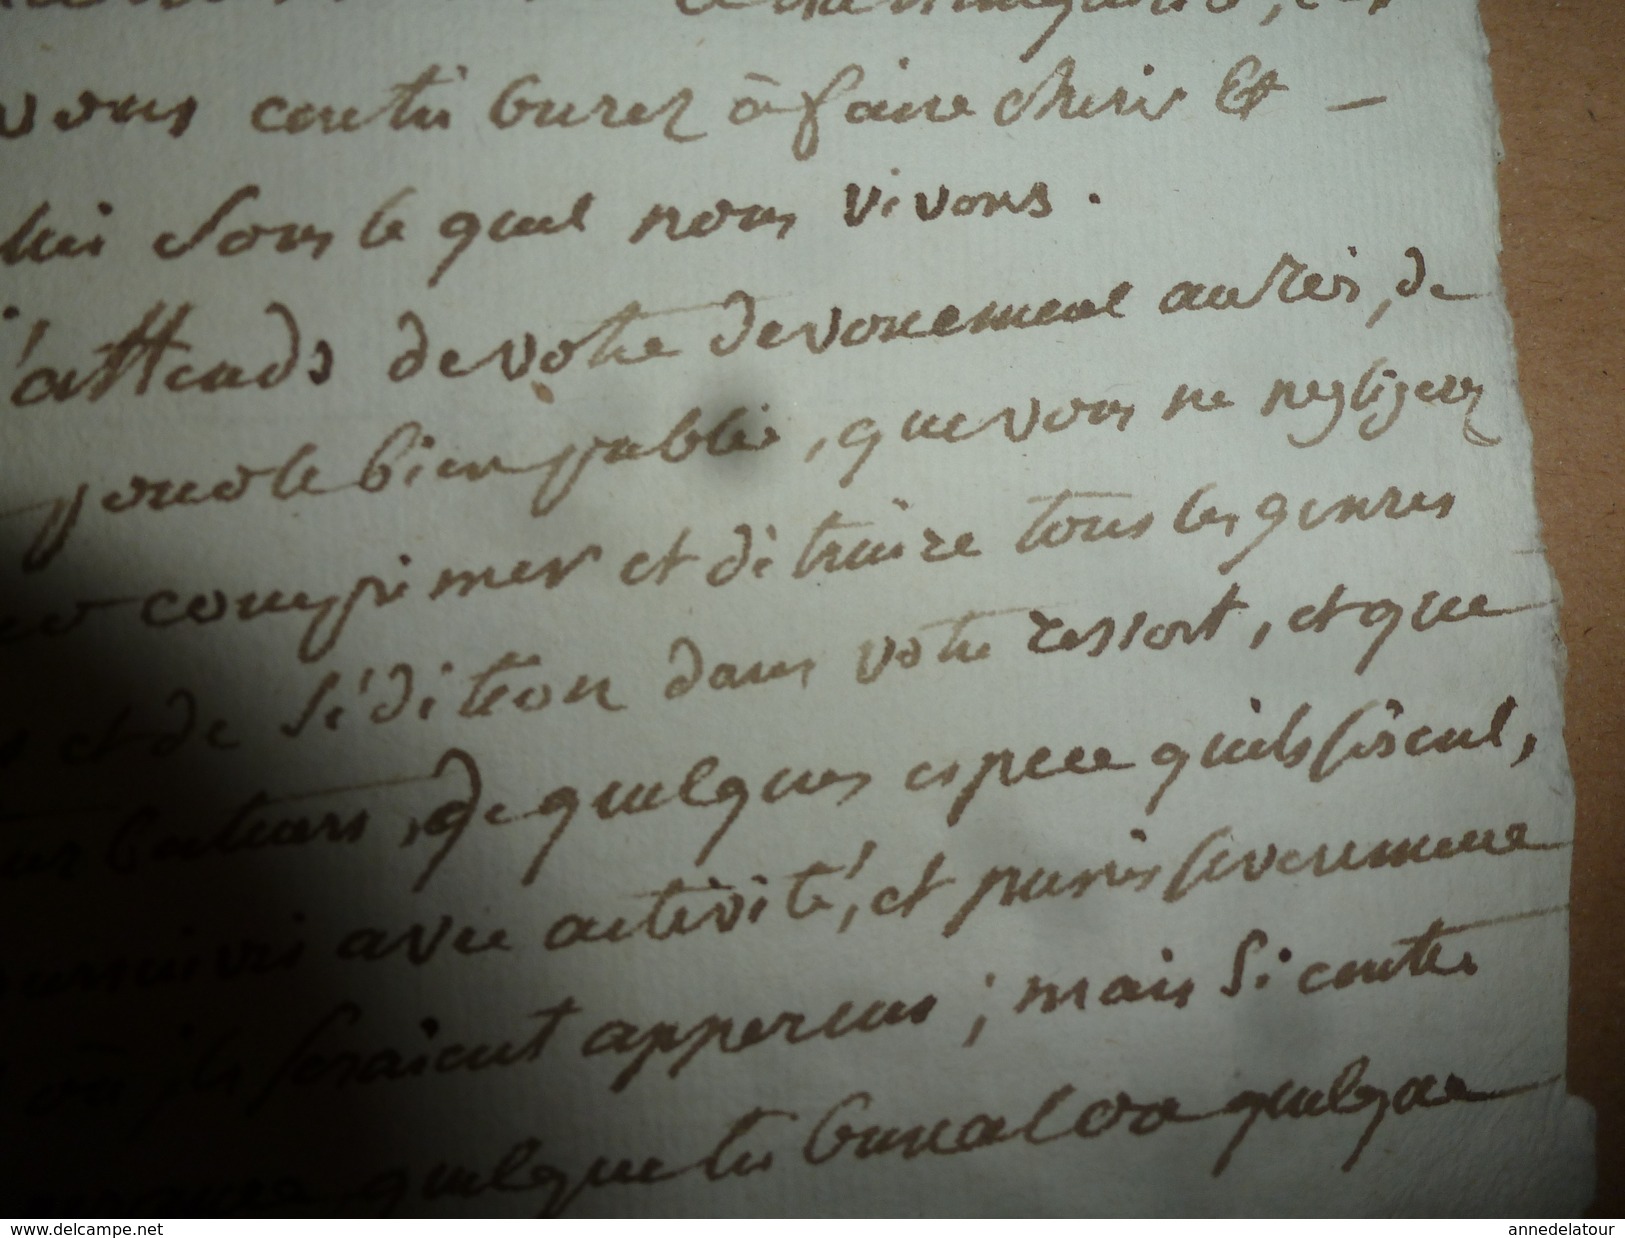 vous contri burez à faire cherir Et —
lui sous le quel nous vivons.
j'attends de votre devouement au Roi, de
pour le bien public, que vous ne negligerez
comprimer et détruire tous les genres
et de sédition dans votre ressort, et que
de quelques espece quils soient,
avec activité, et punis severement
où ils seraient appercus; mais si contre
quelque tribunal ou quelque
www.delcampe.net
annedelatour